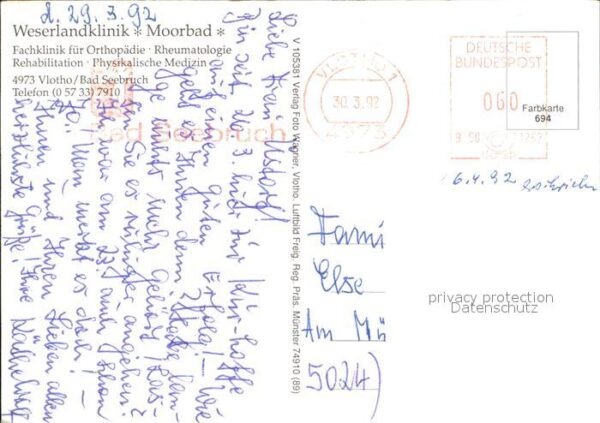 d. 29.3.92
Weserlandklinik * Moorbad *
Fachklinik für Orthopädie · Rheumatologie
Rehabilitation · Physikalische Medizin
4973 Vlotho/Bad Seebruch
Telefon (0 57 33) 7910
Bad Seebruch
Liebe Frau
bin seit d. 3. hier zur Kur - hoffe
auf einen guten Erfolg! - Wie
geht es Ihnen denn?
lange nichts mehr gehört!
Sie es ruhiger angehen?
am 23. auch schon
70! Man merkt es doch! -
Ihnen und Ihren Lieben allen
herzlichste Grüße! Ihre
V 105381 Verlag Foto Wagner, Vlotho. Luftbild Freig. Reg. Präs. Münster 74910 (89)
VLOTHO 1
30.3.92
4973
DEUTSCHE
BUNDESPOST
060
Farbkarte
694
6.4.92
Fami
Else
Am Mü
5024)
privacy protection
Datenschutz